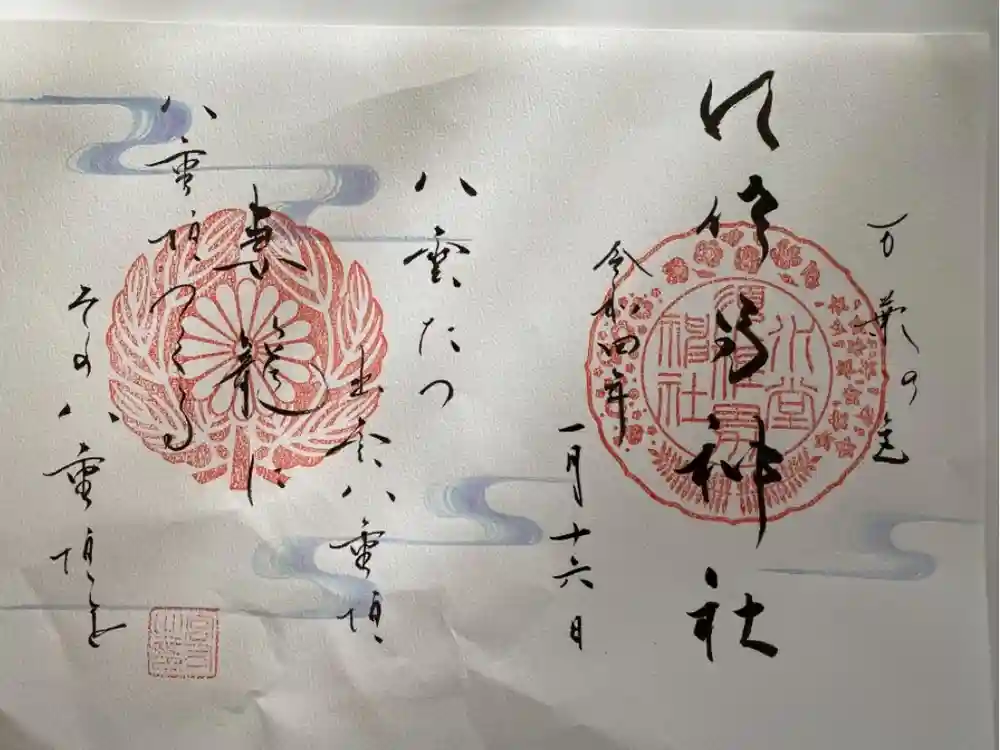 万葉の
須佐男神社
令和四年
一月十六日
八雲たつ
出雲八重垣
妻籠に
八重垣つくる
その八重垣を